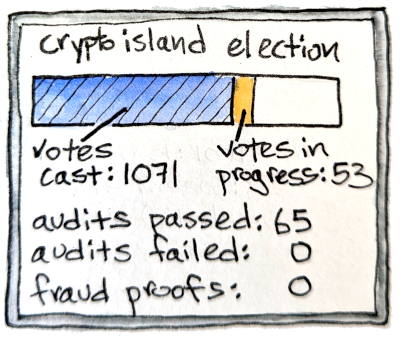 crypto island election
votes votes in
cast: 1071 progress: 53
audits passed: 65
audits failed: 0
fraud proofs: 0